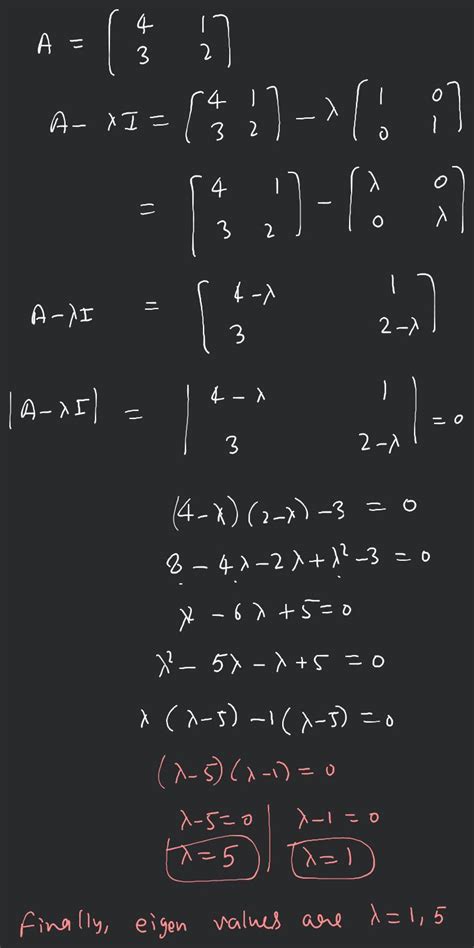 A = [4 1; 3 2]
A - λI = [4 1; 3 2] - λ [1 0; 0 1]
= [4 1; 3 2] - [λ 0; 0 λ]
A-λI = [4-λ 1; 3 2-λ]
|A-λI| = |4-λ 1; 3 2-λ| = 0
(4-λ)(2-λ)-3 = 0
8-4λ-2λ+λ²-3 = 0
λ² - 6λ + 5 = 0
λ² - 5λ - λ + 5 = 0
λ(λ-5) - 1(λ-5) = 0
(λ-5)(λ-1) = 0
λ-5=0 | λ-1=0
λ=5 | λ=1
Finally, eigen values are λ=1,5